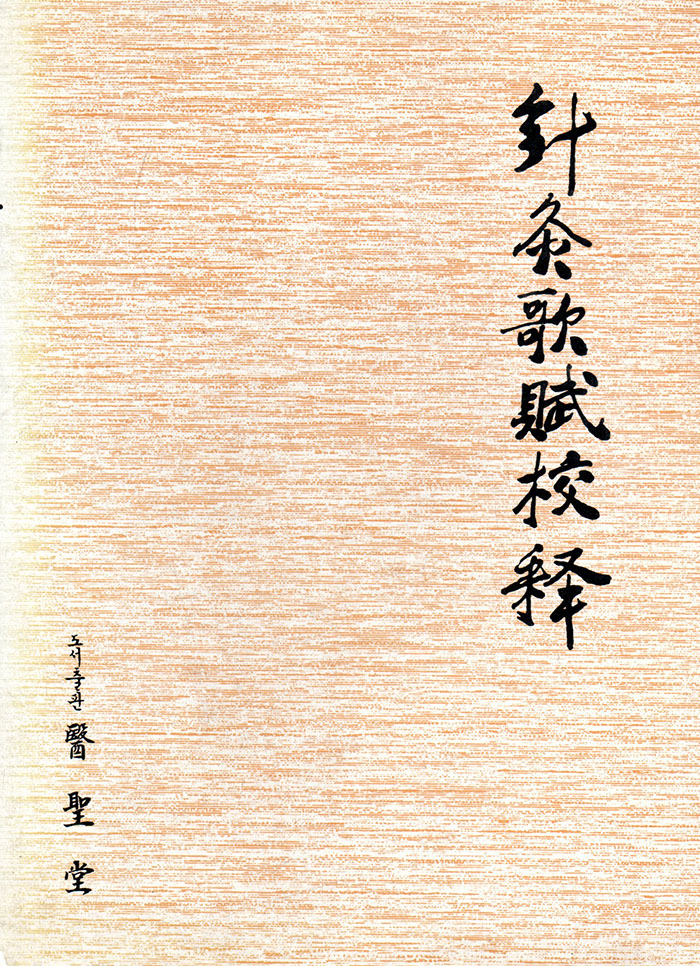 針灸歌賦校释
도서출판 醫聖堂